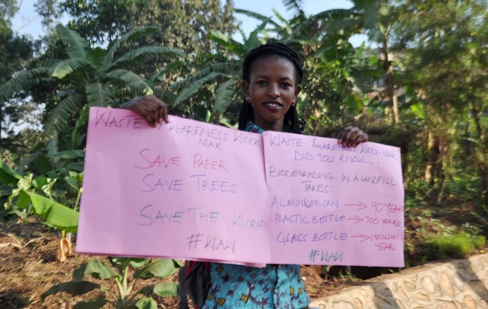 WASTE AWARENESS WEEK
MAK
SAVE PAPER
SAVE TREES
SAVE THE WORLD
#WAW
WASTE AWARENESS WEEK-MAK
DID YOU KNOW....
BIODEGRADING IN A LANDFILL
TAKES:
ALUMINIUM CAN → 90 YEARS
PLASTIC BOTTLE → 700 YEARS
GLASS BOTTLE → 1 MILLION
YEARS
#WAW